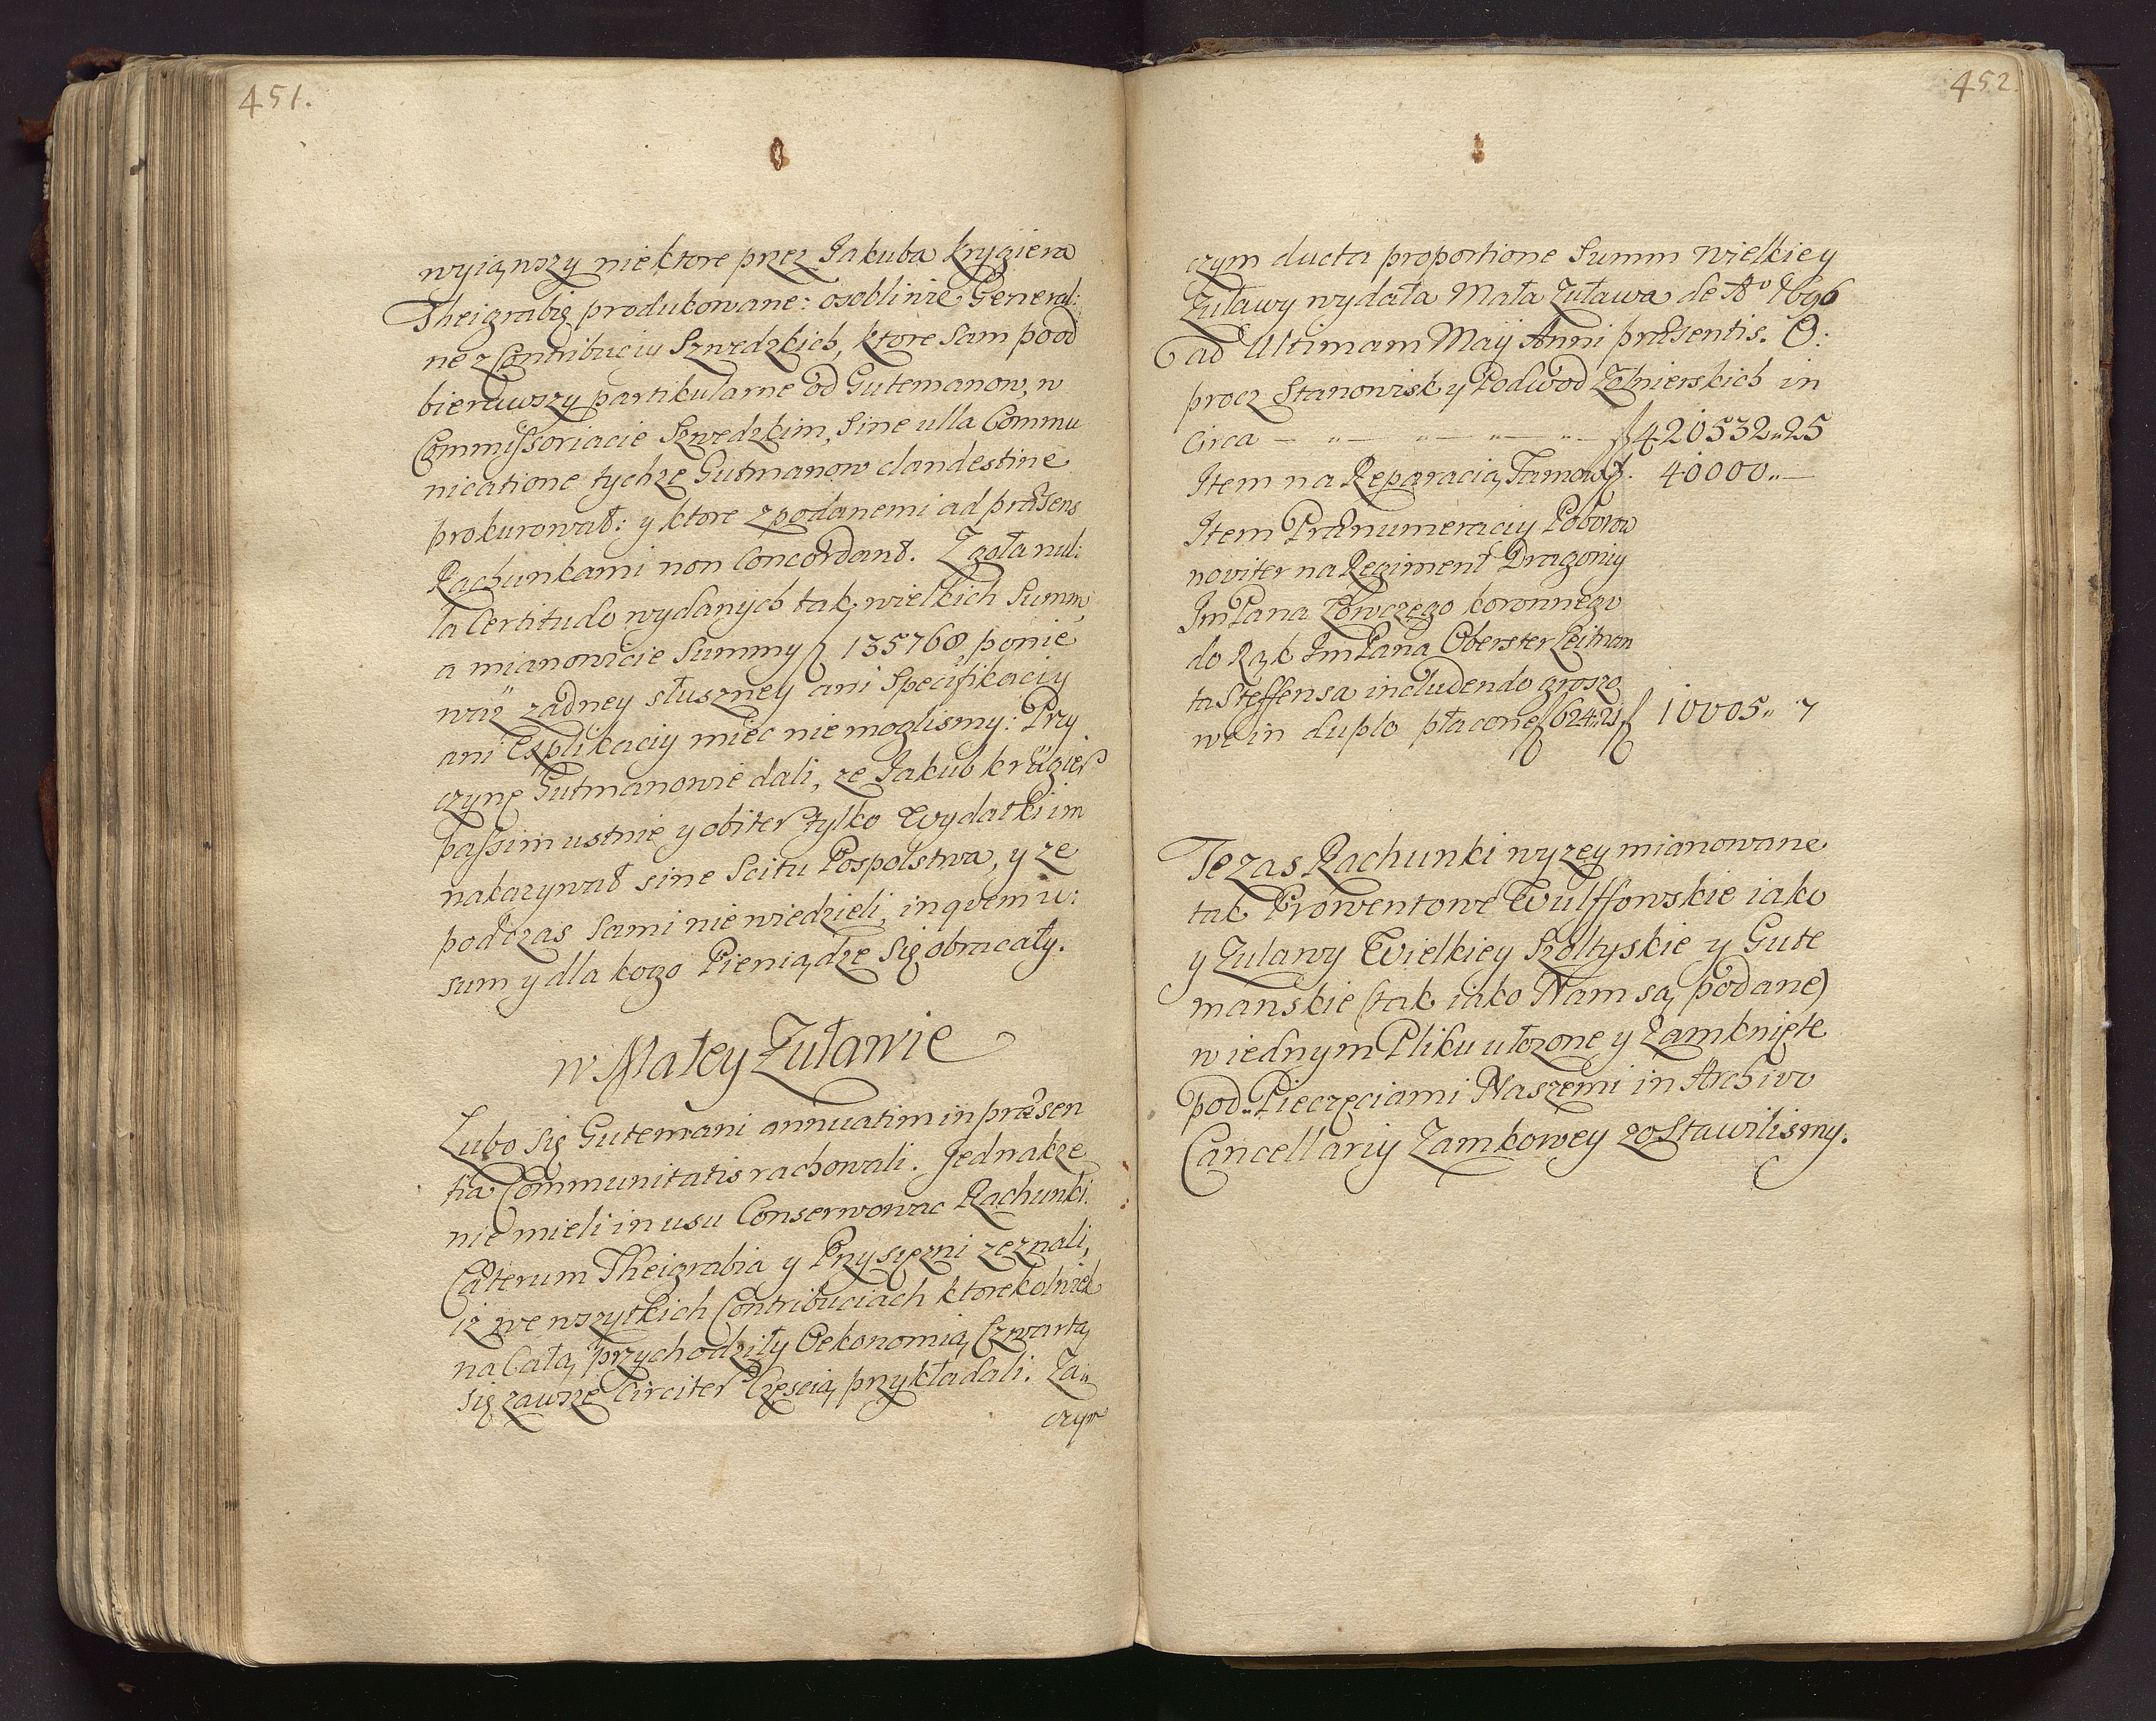 451.
wyiąwszy niektore przez Jakuba Krygiera
Theigrabię produkowane: osobliwie General:
ne z Contribuciy Szwedzkich, ktore sam pood
bierawszy partikularne od Gutemanow, w
Commissoriacie Szwedzkim, sine ulla Commu
nicatione tychze Gutmanow clandestine
prokurował: y ktore z podanemi ad præsens
Rachunkami non Concordant. Zgoła nul:
la Certitudo wydanych tak wielkich Summ,
a mianowicie Summy f 135768, ponie
waz zadney słuszney ani Specifikaciy
ani Explikaciy miec nie moglismy: Przy
czynę Gutmanowie dali, ze Jakub Krügier
passim ustnie y obiter tylko Wydatki im
nakazywał sine Scitu Pospolstwa, y ze
podczas sami nie wiedzieli, in qvem u:
sum y dla kogo Pieniądze się obracały.
w Małey Zuławie
Lubo się Gutemani annuatim in præsen
tia Communitatis rachowali. Jednakze
nie mieli in usu Conserwowac Rachunki.
Cæterum Theigrabia y Przysięzni zeznali,
iz we wszytkich Contribuciach ktorekolwiek
na Całą przychodziły Oekonomią, Czwartą
się zawsze Circiter Częscią przykładali. Za„
czym
452.
czym ducta proportione Summ Wielkiey
Zuławy wydała Mała Zuława de Aº 1696
ad Ultimam Maij Anni præsentis. O:
procz Stanowisk y Podwod Zołnierskich in
Circa — „ — „ — „ — „ — f 420532„25
Item na Reparacią Tamow f. 40000„—
Item Prænumeraciy Poborow
noviter na Regiment Dragoniy
Jm Pana Łowczego koronnego
do Rąk Jm Pana Oberster Leitnan
ta Steffensa includendo groszo
we in duplo płacone f 624„21 f 10005„ 7
Te zas Rachunki wyzey mianowane
tak Prowentowe Wulffowskie iako
y Zulawy Wielkiey Szoltyskie y Gute
manskie (tak iako Nam są podane)
w iednym Pliku ułozone y Zamknięte
pod„Pieczęciami Naszemi in Archivo
Cancellariy Zamkowey zostawilismy.